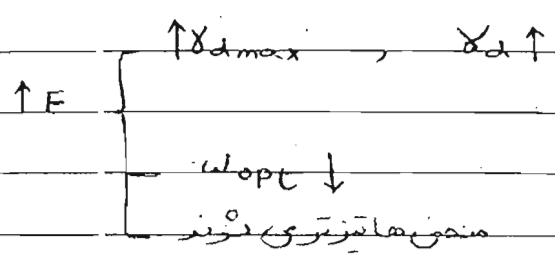 ↑γdmax , γd ↑
↑ E
ωopt ↓
منحنی ها تیزتر می شوند